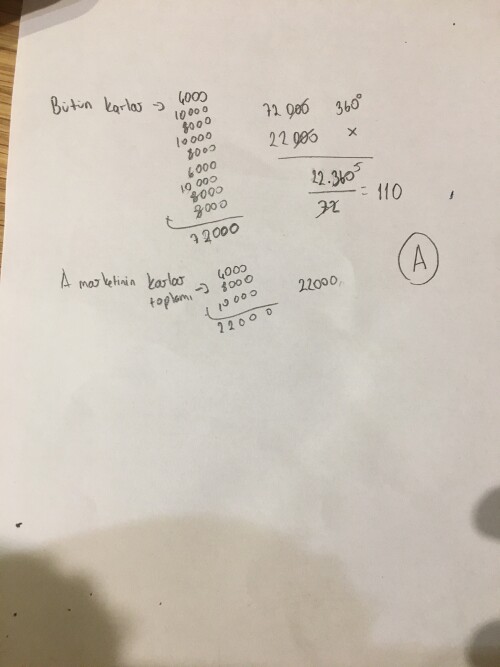 Bütün karlar → 4000
10000
8000
10000
8000
6000
10 000
8000
+ 8000
72000
72 000 360°
22 000 x
22.360 5
72
= 110
A
A marketinin karlar
toplamı → 4000
8000
+ 10 000
22000
22000